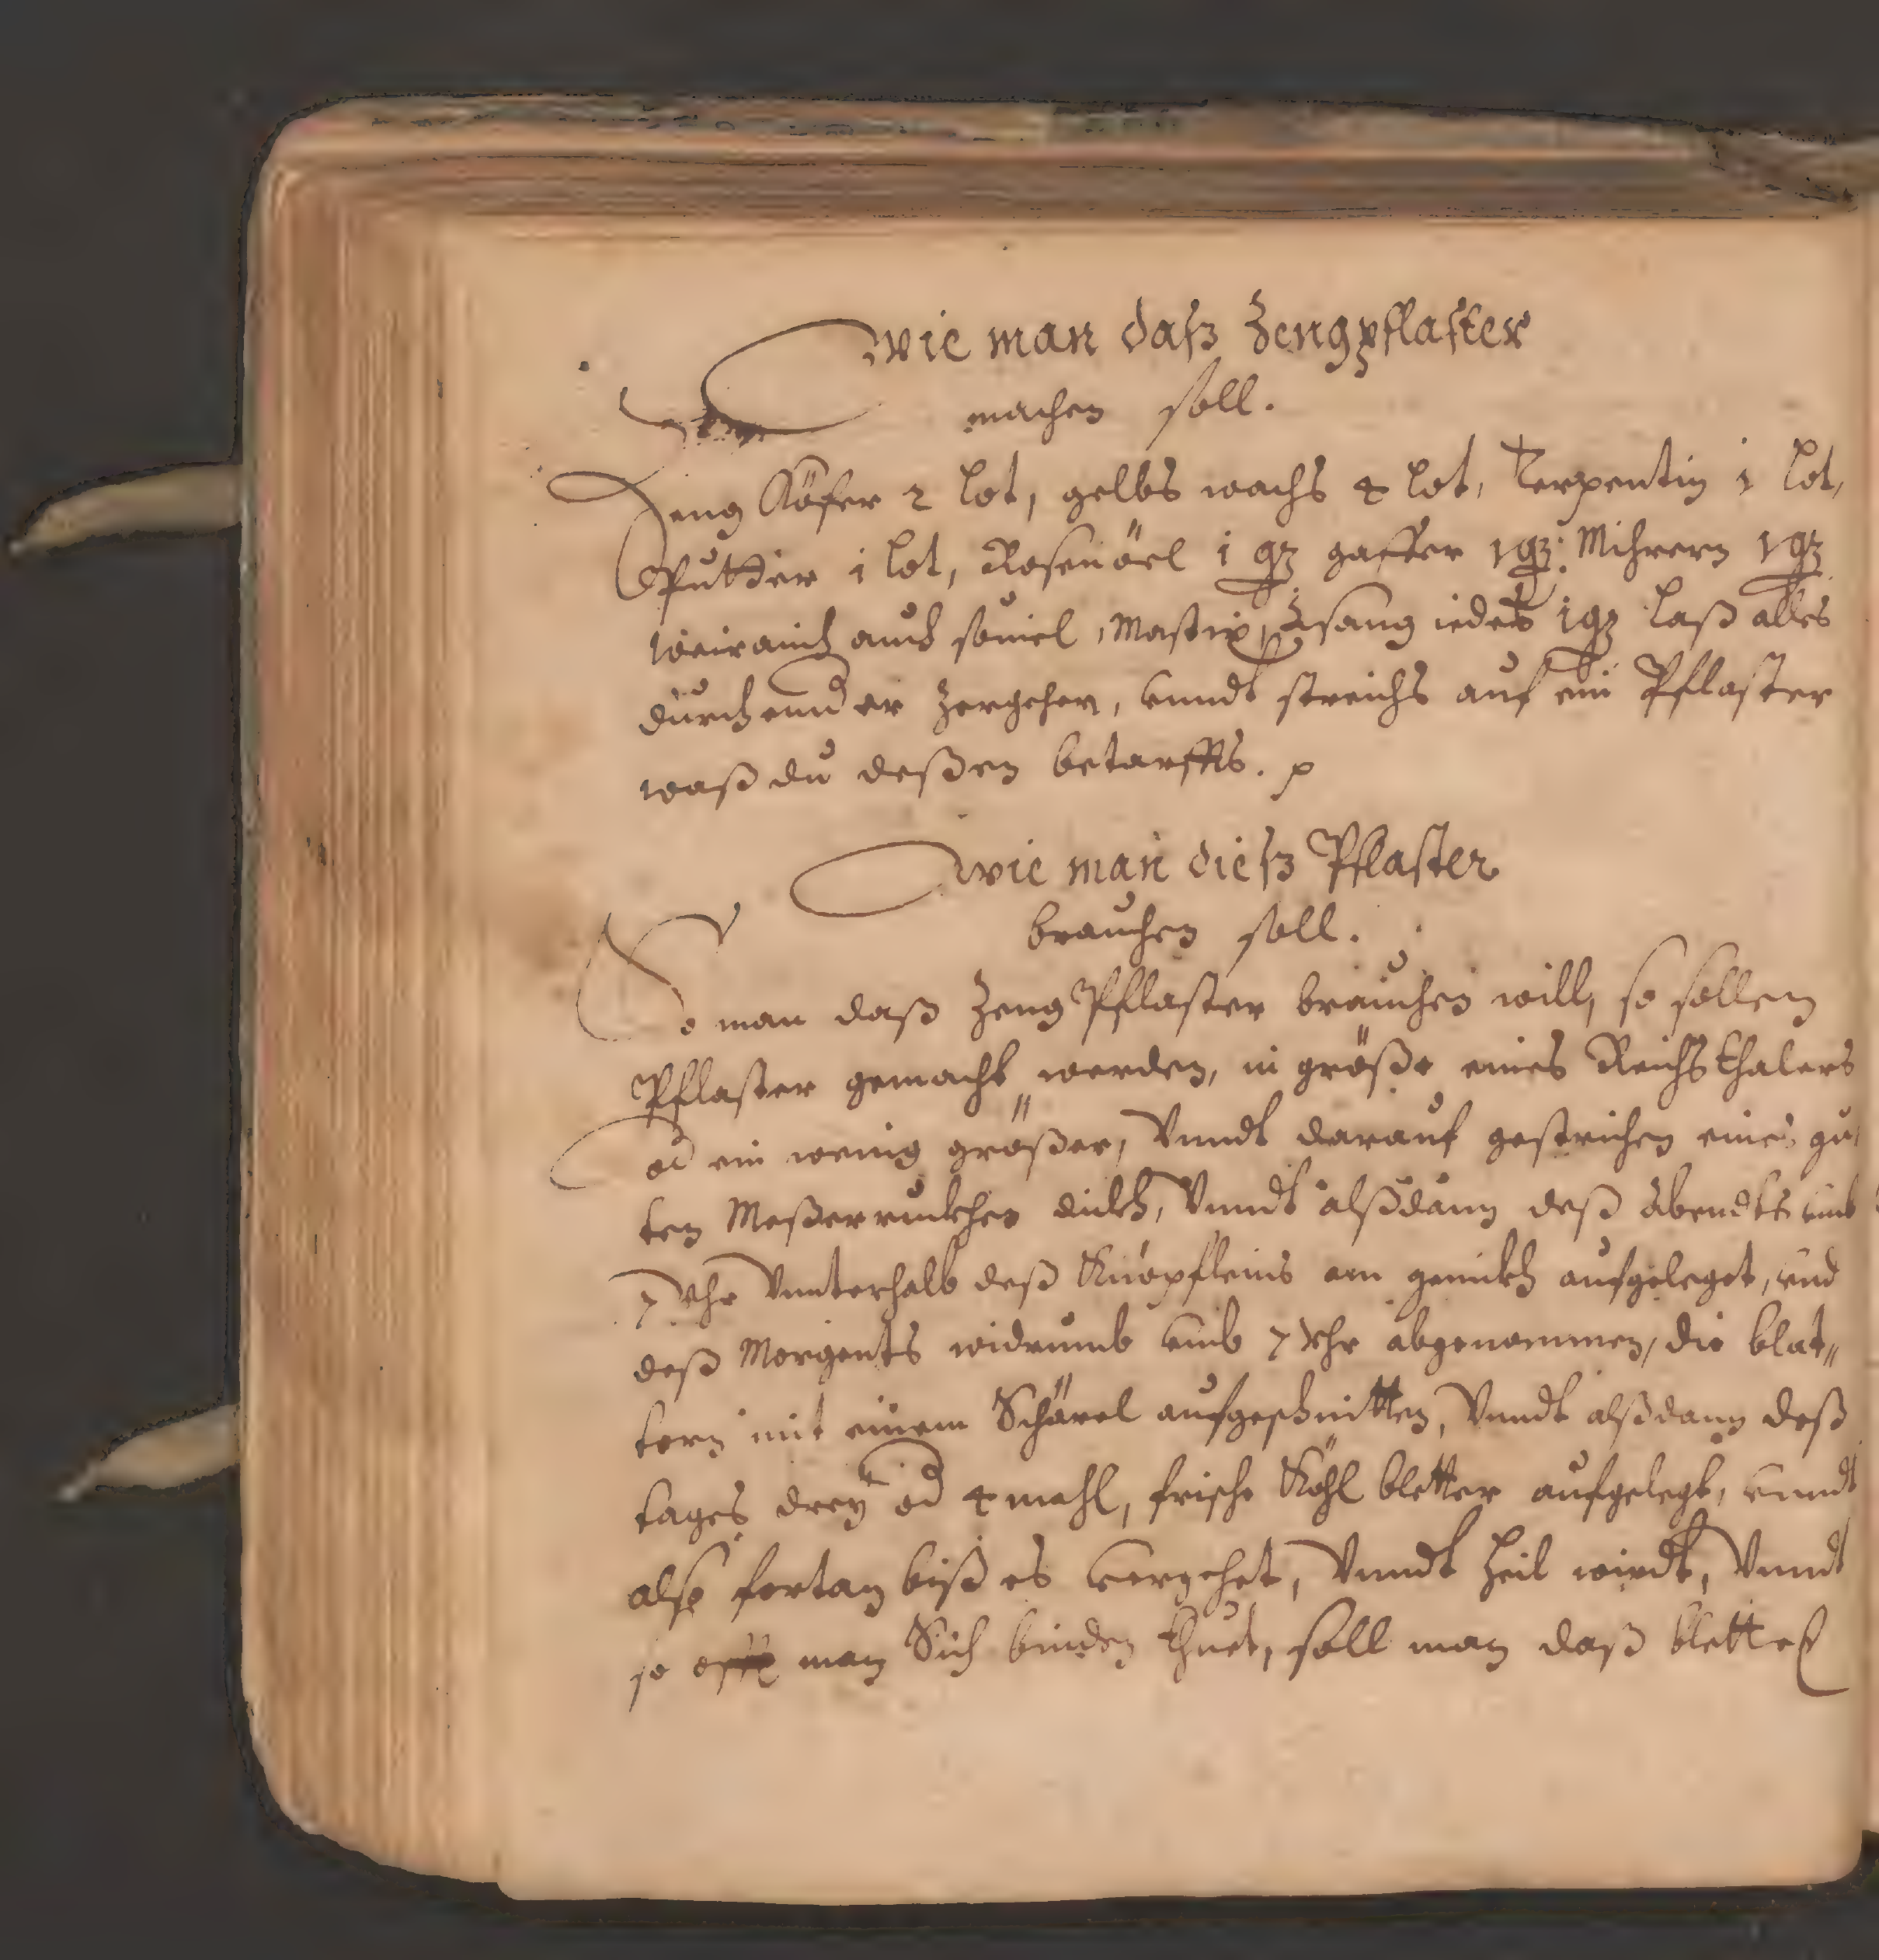 wie man daß Zengpflaster
machen soll.
Zeng Köfer 2 lot, gelbs wachs 4 lot, Terpentin 1 lot,
Putter 1 lot, Rosenöel 1 qz gaffer 1 qz: Mihrern 1 qz
weirauch auch souiel, Mastix, iedes 1 qz laß alles
durch einder zergehen, vnndt streichs auf ein Pflaster
waß du deßen betarffts.
wie man dieß Pflaster
brauchen soll.
So man daß Zeng Pflaster brauchen will, so sollen
Pflaster gemacht werden, in größe eines Reichsthalers
od ein wenig größer, Vnndt darauf gestrichen eines gu
ten Meßerruckhen dickh, Vnndt alßdann deß abendts vmb
7 Vhr Vnnterhalb deß Knöpfleins am genickh aufgeleget, vnd
deß Morgents widrumb vmb 7 Vhr abgenommen, die blat„
tern mit einem Schärel aufgeschnitten, Vnndt alßdann deß
tages drey od 4 mahl, frische Köhl bletter aufgelegt, vnndt
also fortan biß es vergehet, Vnndt heil wirdt, Vnndt
so man Sich binden thuet, soll man daß bletter